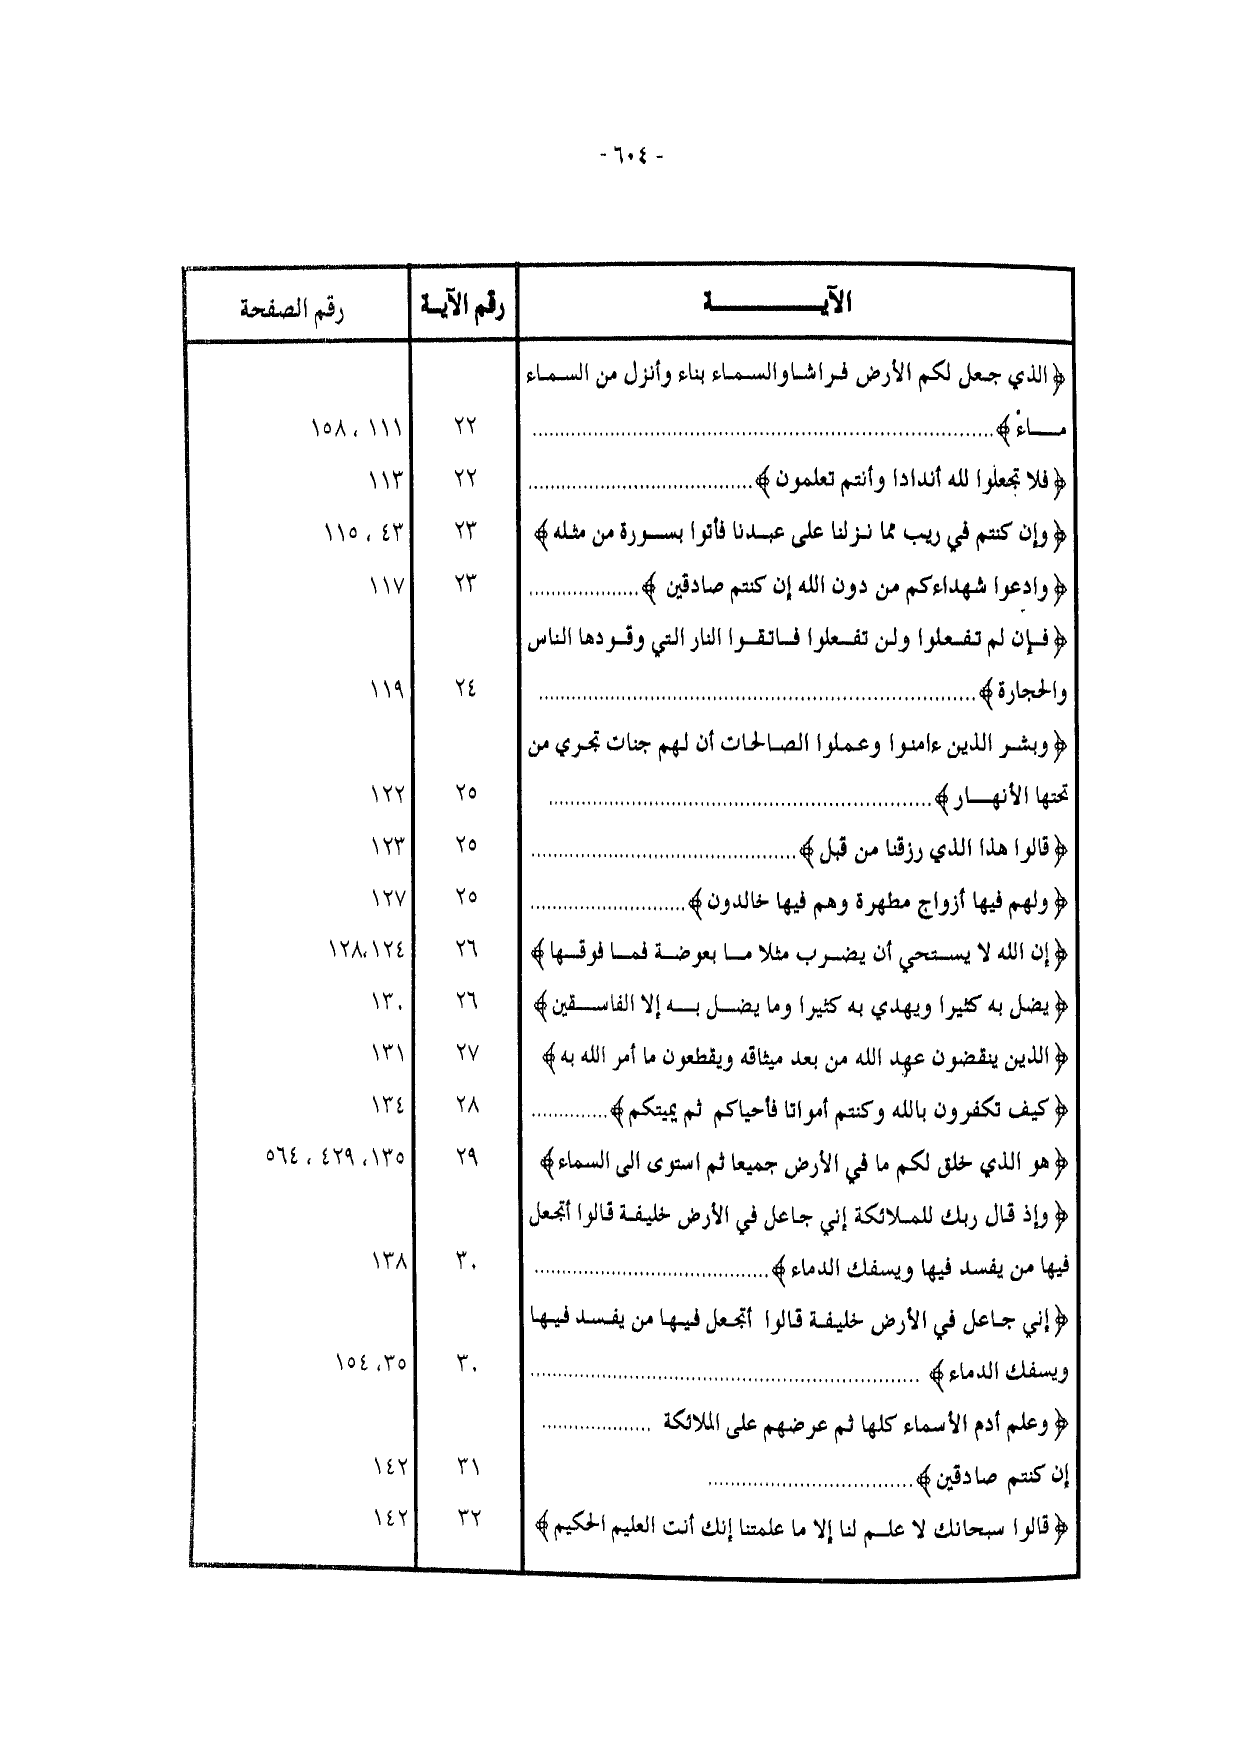 - ٦٠٤ -
الآيــــــــة رقم الآيـة رقم الصفحة
﴿ الذي جعل لكم الأرض فراشاوالسماء بناء وأنزل من السماء
مـــاءً ﴾ .......... ٢٢ ١١١ ، ١٥٨
﴿ فلا تجعلوا لله أندادا وأنتم تعلمون ﴾ .......... ٢٢ ١١٣
﴿ وإن كنتم في ريب مما نزلنا على عبدنا فأتوا بسورة من مثله ﴾ ٢٣ ٤٣ ، ١١٥
﴿ وادعوا شهداءكم من دون الله إن كنتم صادقين ﴾ .......... ٢٣ ١١٧
﴿ فإن لم تفعلوا ولن تفعلوا فاتقوا النار التي وقودها الناس
والحجارة ﴾ .......... ٢٤ ١١٩
﴿ وبشر الذين ءامنوا وعملوا الصالحات أن لهم جنات تجري من
تحتها الأنهـــار ﴾ .......... ٢٥ ١٢٢
﴿ قالوا هذا الذي رزقنا من قبل ﴾ .......... ٢٥ ١٢٣
﴿ ولهم فيها أزواج مطهرة وهم فيها خالدون ﴾ .......... ٢٥ ١٢٧
﴿ إن الله لا يستحي أن يضرب مثلا ما بعوضة فما فوقها ﴾ ٢٦ ١٢٤، ١٢٨
﴿ يضل به كثيرا ويهدي به كثيرا وما يضل به إلا الفاسقين ﴾ ٢٦ ١٣٠
﴿ الذين ينقضون عهد الله من بعد ميثاقه ويقطعون ما أمر الله به ﴾ ٢٧ ١٣١
﴿ كيف تكفرون بالله وكنتم أمواتا فأحياكم ثم يميتكم ﴾ .......... ٢٨ ١٣٤
﴿ هو الذي خلق لكم ما في الأرض جميعا ثم استوى الى السماء ﴾ ٢٩ ١٣٥، ٤٢٩ ، ٥٦٤
﴿ وإذ قال ربك للملائكة إني جاعل في الأرض خليفة قالوا أتجعل
فيها من يفسد فيها ويسفك الدماء ﴾ .......... ٣٠ ١٣٨
﴿ إني جاعل في الأرض خليفة قالوا أتجعل فيها من يفسد فيها
ويسفك الدماء ﴾ .......... ٣٠ ٣٥، ١٥٤
﴿ وعلم أدم الأسماء كلها ثم عرضهم على الملائكة ..........
إن كنتم صادقين ﴾ .......... ٣١ ١٤٢
﴿ قالوا سبحانك لا علم لنا إلا ما علمتنا إنك أنت العليم الحكيم ﴾ ٣٢ ١٤٢